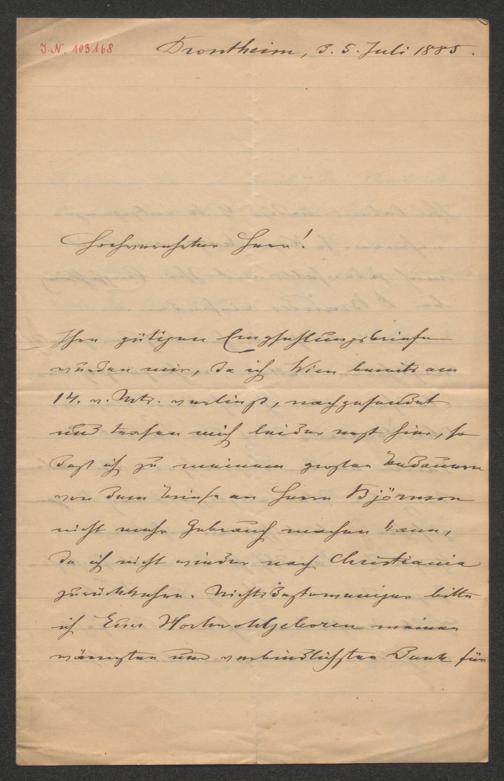 J.N. 103.168
Drontheim, d. 5. Juli 1885.
Hochverehrter Herr!
Ihre gütigen Empfehlungsbriefe
wurden mir, da ich Wien bereits am
17. v. Mts. verließ, nachgesendet
und trafen mich leider erst hier, so
daß ich zu meinem großen Bedauern
von dem Briefe an Herrn Björnson
nicht mehr Gebrauch machen kann,
da ich nicht wieder nach Christiania
zurückkehre. Nichtsdestoweniger bitte
ich Euer Hochwohlgeboren meinen
wärmsten und verbindlichsten Dank für